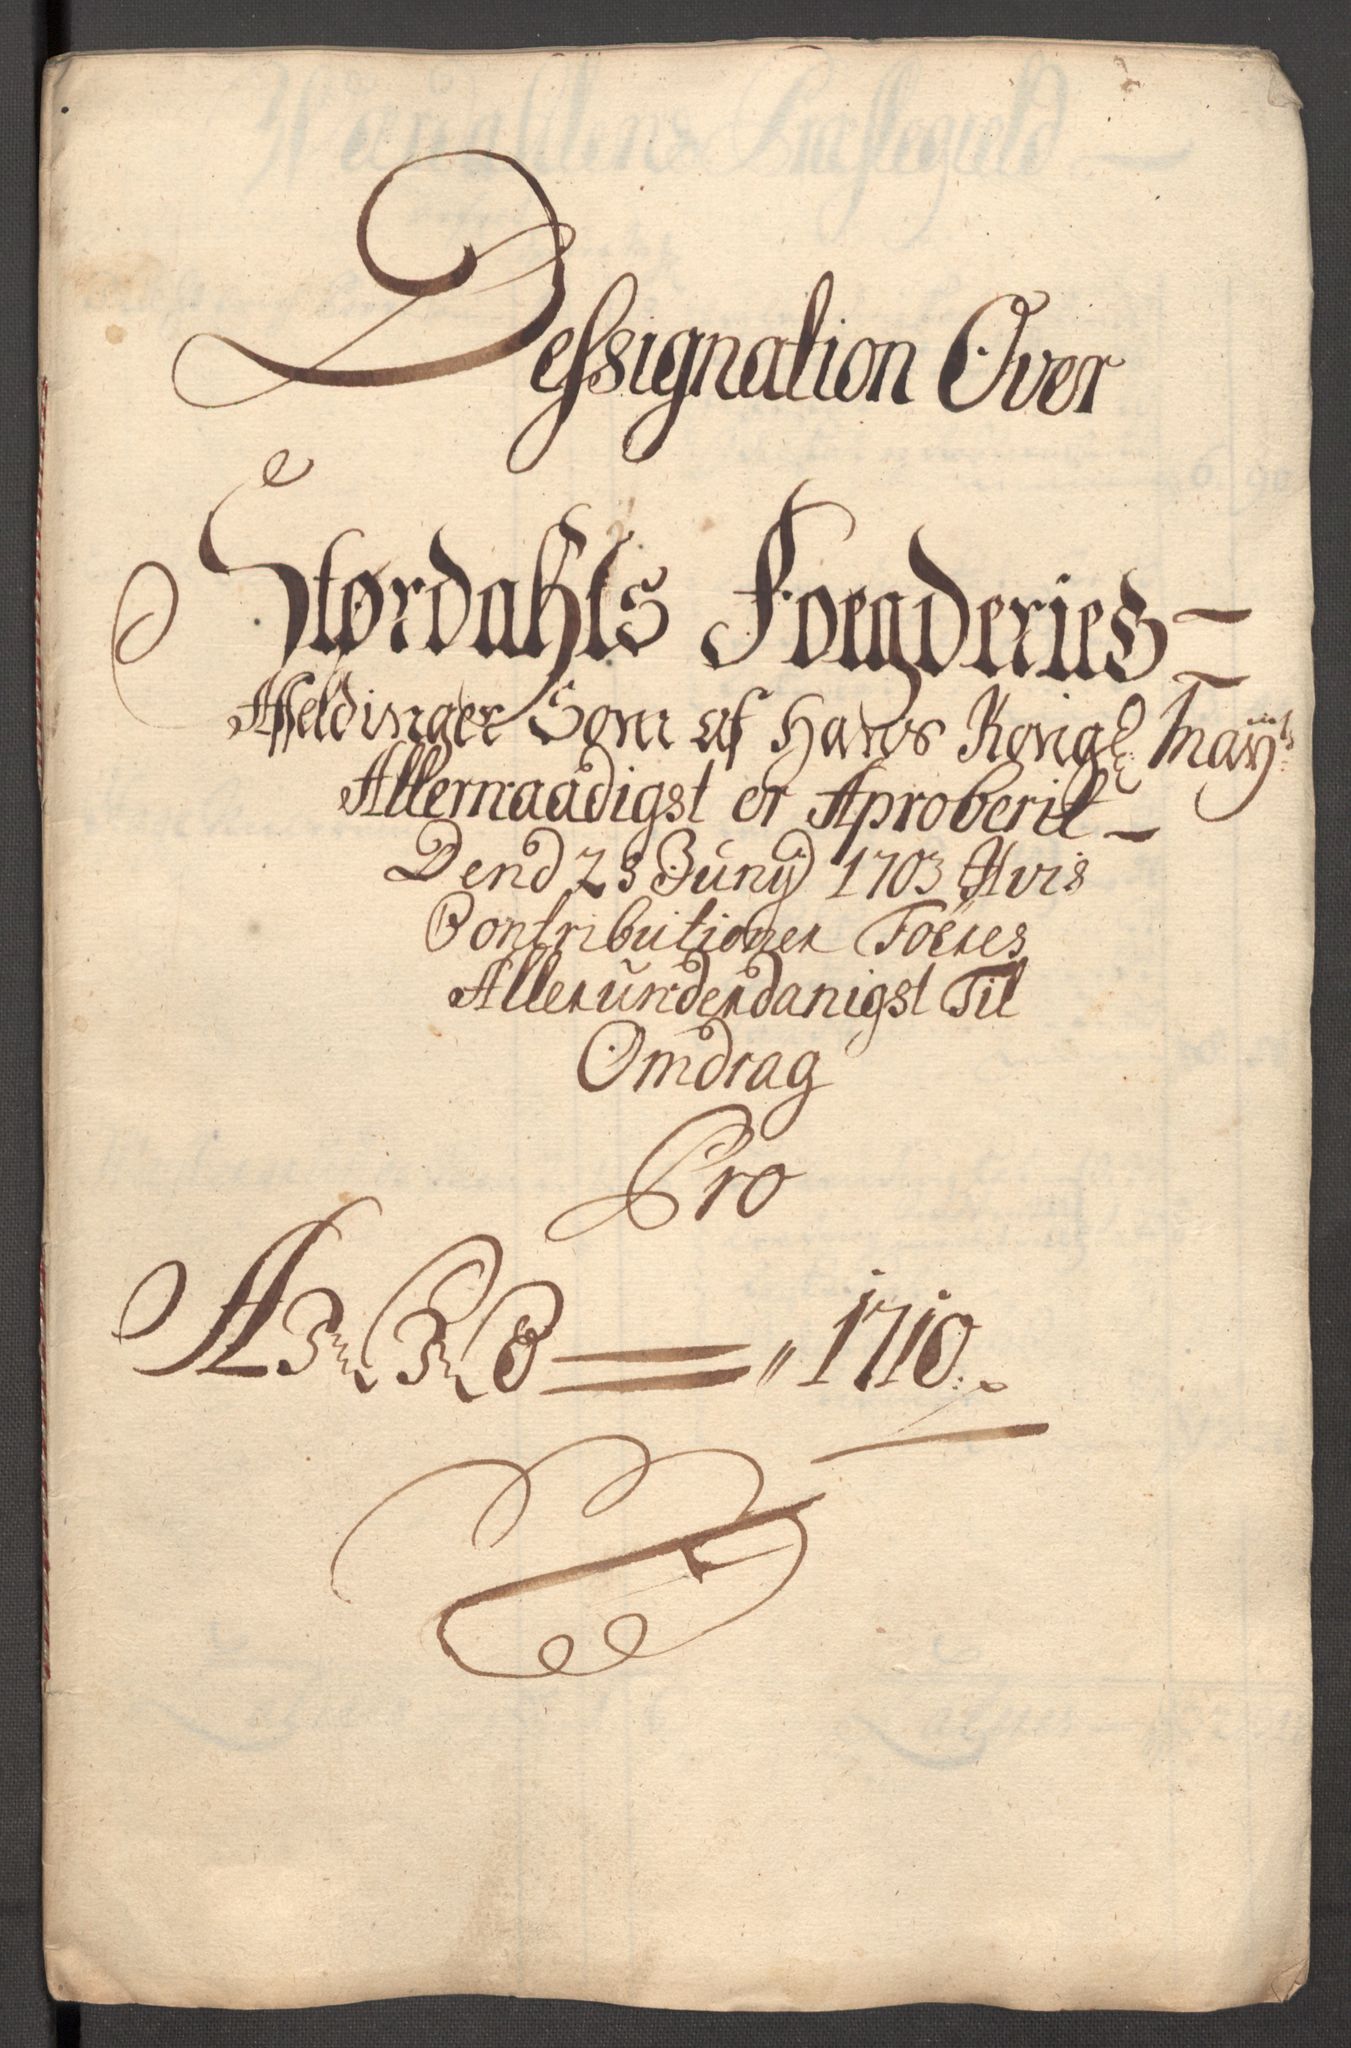 Dessignation Over
Størdahls Foegderies
Affeldinger Som af Hans Kongl Mayts
Allernaadigst er Aproberit
Dend 23 Junÿ 1703 Hvis
Contributioner Föeres
Allerunderdanigst Til
Omdrag
Pro
Anno 1710